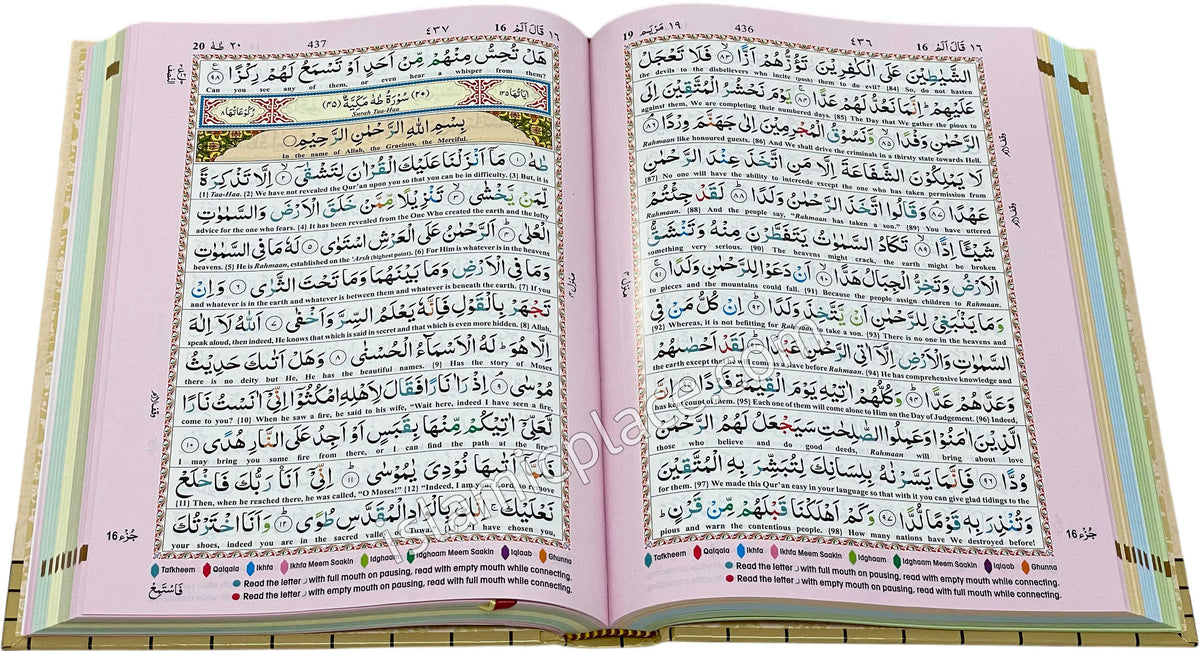 19 ١٩ مَرْيَم 436 ٤٣٦ 16 ١٦ قَالَ اَلَمْ
الشَّيٰطِيْنَ عَلَى الْكٰفِرِيْنَ تَؤُزُّهُمْ اَزًّا ﴿٨٣﴾ فَلَا تَعْجَلْ
the devils to the disbelievers who incite (push) them to do evil? (84) So, do not hasten
عَلَيْهِمْ ؕ اِنَّمَا نَعُدُّ لَهُمْ عَدًّا ﴿٨٤﴾ يَوْمَ نَحْشُرُ الْمُتَّقِيْنَ اِلَى
against them, We are completing their numbered days. (85) The Day that We gather the pious to
الرَّحْمٰنِ وَفْدًا ﴿٨٥﴾ وَّنَسُوْقُ الْمُجْرِمِيْنَ اِلٰى جَهَنَّمَ وِرْدًا ﴿٨٦﴾
Rahmaan like honoured guests. (86) And We shall drive the criminals in a thirsty state towards Hell.
لَا يَمْلِكُوْنَ الشَّفَاعَةَ اِلَّا مَنِ اتَّخَذَ عِنْدَ الرَّحْمٰنِ
(87) No one will have the ability to intercede except the one who has taken permission from
عَهْدًا ﴿٨٧﴾ وَقَالُوا اتَّخَذَ الرَّحْمٰنُ وَلَدًا ﴿٨٨﴾ لَقَدْ جِئْتُمْ
Rahmaan. (88) And the people say, “Rahmaan has taken a son.” (89) You have uttered
شَيْـًٔا اِدًّا ﴿٨٩﴾ تَكَادُ السَّمٰوٰتُ يَتَفَطَّرْنَ مِنْهُ وَتَنْشَقُّ
something very serious. (90) The heavens might crack, the earth might be broken
الْاَرْضُ وَتَخِرُّ الْجِبَالُ هَدًّا ﴿٩٠﴾ اَنْ دَعَوْا لِلرَّحْمٰنِ وَلَدًا ﴿٩١﴾
to pieces and the mountains could fall. (91) Because the people assign children to Rahmaan.
وَمَا يَنْۢبَغِيْ لِلرَّحْمٰنِ اَنْ يَّتَّخِذَ وَلَدًا ﴿٩٢﴾ اِنْ كُلُّ مَنْ فِي
(92) Whereas, it is not befitting for Rahmaan to take a son. (93) There is no one in the heavens and
السَّمٰوٰتِ وَالْاَرْضِ اِلَّاۤ اٰتِي الرَّحْمٰنِ عَبْدًا ﴿٩٣﴾ لَقَدْ اَحْصٰىهُمْ
the earth except that he will come as a slave before Rahmaan. (94) He has comprehensive knowledge and
وَعَدَّهُمْ عَدًّا ﴿٩٤﴾ وَكُلُّهُمْ اٰتِيْهِ يَوْمَ الْقِيٰمَةِ فَرْدًا ﴿٩٥﴾ اِنَّ
has kept count of them. (95) Each one of them will come alone to Him on the Day of Judgement. (96) Indeed,
الَّذِيْنَ اٰمَنُوْا وَعَمِلُوا الصّٰلِحٰتِ سَيَجْعَلُ لَهُمُ الرَّحْمٰنُ
those who believe and do good deeds, Rahmaan will bring about love
وُدًّا ﴿٩٦﴾ فَاِنَّمَا يَسَّرْنٰهُ بِلِسَانِكَ لِتُبَشِّرَ بِهِ الْمُتَّقِيْنَ
for them. (97) We made this Qur'an easy in your language so that with it you can give glad tidings to the
وَتُنْذِرَ بِهٖ قَوْمًا لُّدًّا ﴿٩٧﴾ وَكَمْ اَهْلَكْنَا قَبْلَهُمْ مِّنْ قَرْنٍ ؕ
pious and warn the contentious people. (98) How many nations have We destroyed before!
16 جُزْء
Tafkheem Qalqala Ikhfa Ikhfa Meem Saakin Idghaam Idghaam Meem Saakin Iqlaab Ghunna
Read the letter ر with full mouth on pausing, read with empty mouth while connecting.
Read the letter ر with empty mouth on pausing, read with full mouth while connecting.
20 ٢٠ طٰهٰ 437 ٤٣٧ 16 ١٦ قَالَ اَلَمْ
هَلْ تُحِسُّ مِنْهُمْ مِّنْ اَحَدٍ اَوْ تَسْمَعُ لَهُمْ رِكْزًا ﴿٩٨﴾
Can you see any of them, or even hear a whisper from them?
اٰيَاتُهَا ١٣٥ (٢٠) سُوْرَةُ طٰهٰ مَكِّيَّةٌ (٤٥) رُكُوْعَاتُهَا ٨
Surah Taa-Haa
بِسْمِ اللّٰهِ الرَّحْمٰنِ الرَّحِيْمِ
In the name of Allah, the Gracious, the Merciful.
طٰهٰ ﴿١﴾ مَاۤ اَنْزَلْنَا عَلَيْكَ الْقُرْاٰنَ لِتَشْقٰۤى ﴿٢﴾ اِلَّا تَذْكِرَةً
(1) Taa-Haa. (2) We have not revealed the Qur'an upon you so that you can be in difficulty. (3) But, it is
لِّمَنْ يَّخْشٰى ﴿٣﴾ تَنْزِيْلًا مِّمَّنْ خَلَقَ الْاَرْضَ وَالسَّمٰوٰتِ
advice for the one who fears. (4) It has been revealed from the One Who created the earth and the lofty
الْعُلٰى ﴿٤﴾ اَلرَّحْمٰنُ عَلَى الْعَرْشِ اسْتَوٰى ﴿٥﴾ لَهٗ مَا فِي السَّمٰوٰتِ
heavens. (5) He is Rahmaan, established on the 'Arsh (highest point). (6) For Him is whatever is in the heavens
وَمَا فِي الْاَرْضِ وَمَا بَيْنَهُمَا وَمَا تَحْتَ الثَّرٰى ﴿٦﴾ وَاِنْ
and whatever is in the earth and whatever is between them and whatever is beneath the earth. (7) If you
تَجْهَرْ بِالْقَوْلِ فَاِنَّهٗ يَعْلَمُ السِّرَّ وَاَخْفٰى ﴿٧﴾ اَللّٰهُ لَاۤ اِلٰهَ
speak aloud, then indeed, He knows that which is said in secret and that which is even more hidden. (8) Allah,
اِلَّا هُوَ ؕ لَهُ الْاَسْمَآءُ الْحُسْنٰى ﴿٨﴾ وَهَلْ اَتٰىكَ حَدِيْثُ
there is no deity but He, He has the beautiful names. (9) Has the story of Moses
مُوْسٰى ﴿٩﴾ اِذْ رَاٰ نَارًا فَقَالَ لِاَهْلِهِ امْكُثُوْۤا اِنِّيْۤ اٰنَسْتُ نَارًا
come to you? (10) When he saw a fire, he said to his wife, “Wait here, indeed I have seen a fire,
لَّعَلِّيْۤ اٰتِيْكُمْ مِّنْهَا بِقَبَسٍ اَوْ اَجِدُ عَلَى النَّارِ هُدًى ﴿١٠﴾
I may bring you some fire from there, or I can find the path at the fire.”
فَلَمَّاۤ اَتٰىهَا نُوْدِيَ يٰمُوْسٰى ﴿١١﴾ اِنِّيْۤ اَنَا رَبُّكَ فَاخْلَعْ
(11) Then, when he reached there, he was called, “O Moses!” (12) “Indeed, I am your Lord, so remove
نَعْلَيْكَ ۚ اِنَّكَ بِالْوَادِ الْمُقَدَّسِ طُوًى ﴿١٢﴾ وَاَنَا اخْتَرْتُكَ
your shoes, indeed you are in the sacred valley, Tuwa. I have chosen you,
16 جُزْء
Tafkheem Qalqala Ikhfa Ikhfa Meem Saakin Idghaam Idghaam Meem Saakin Iqlaab Ghunna
Read the letter ر with full mouth on pausing, read with empty mouth while connecting.
Read the letter ر with empty mouth on pausing, read with full mouth while connecting.
فَاسْتَمِعْ
islamicplace.com